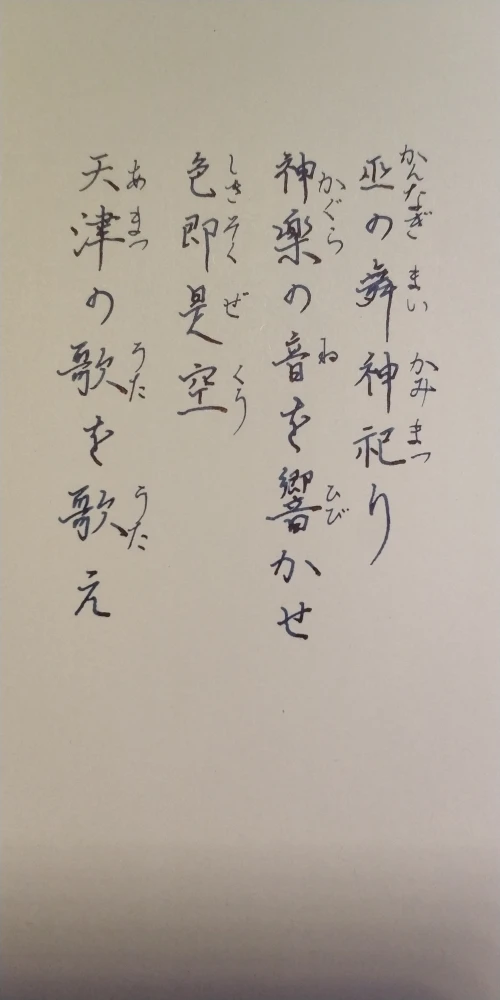 巫の舞神祀り
かんなぎ まい かみ まつ
神楽の音を響かせ
かぐら ね ひび
色即是空
しき そく ぜ くう
天津の歌を歌え
あまつ うた うた